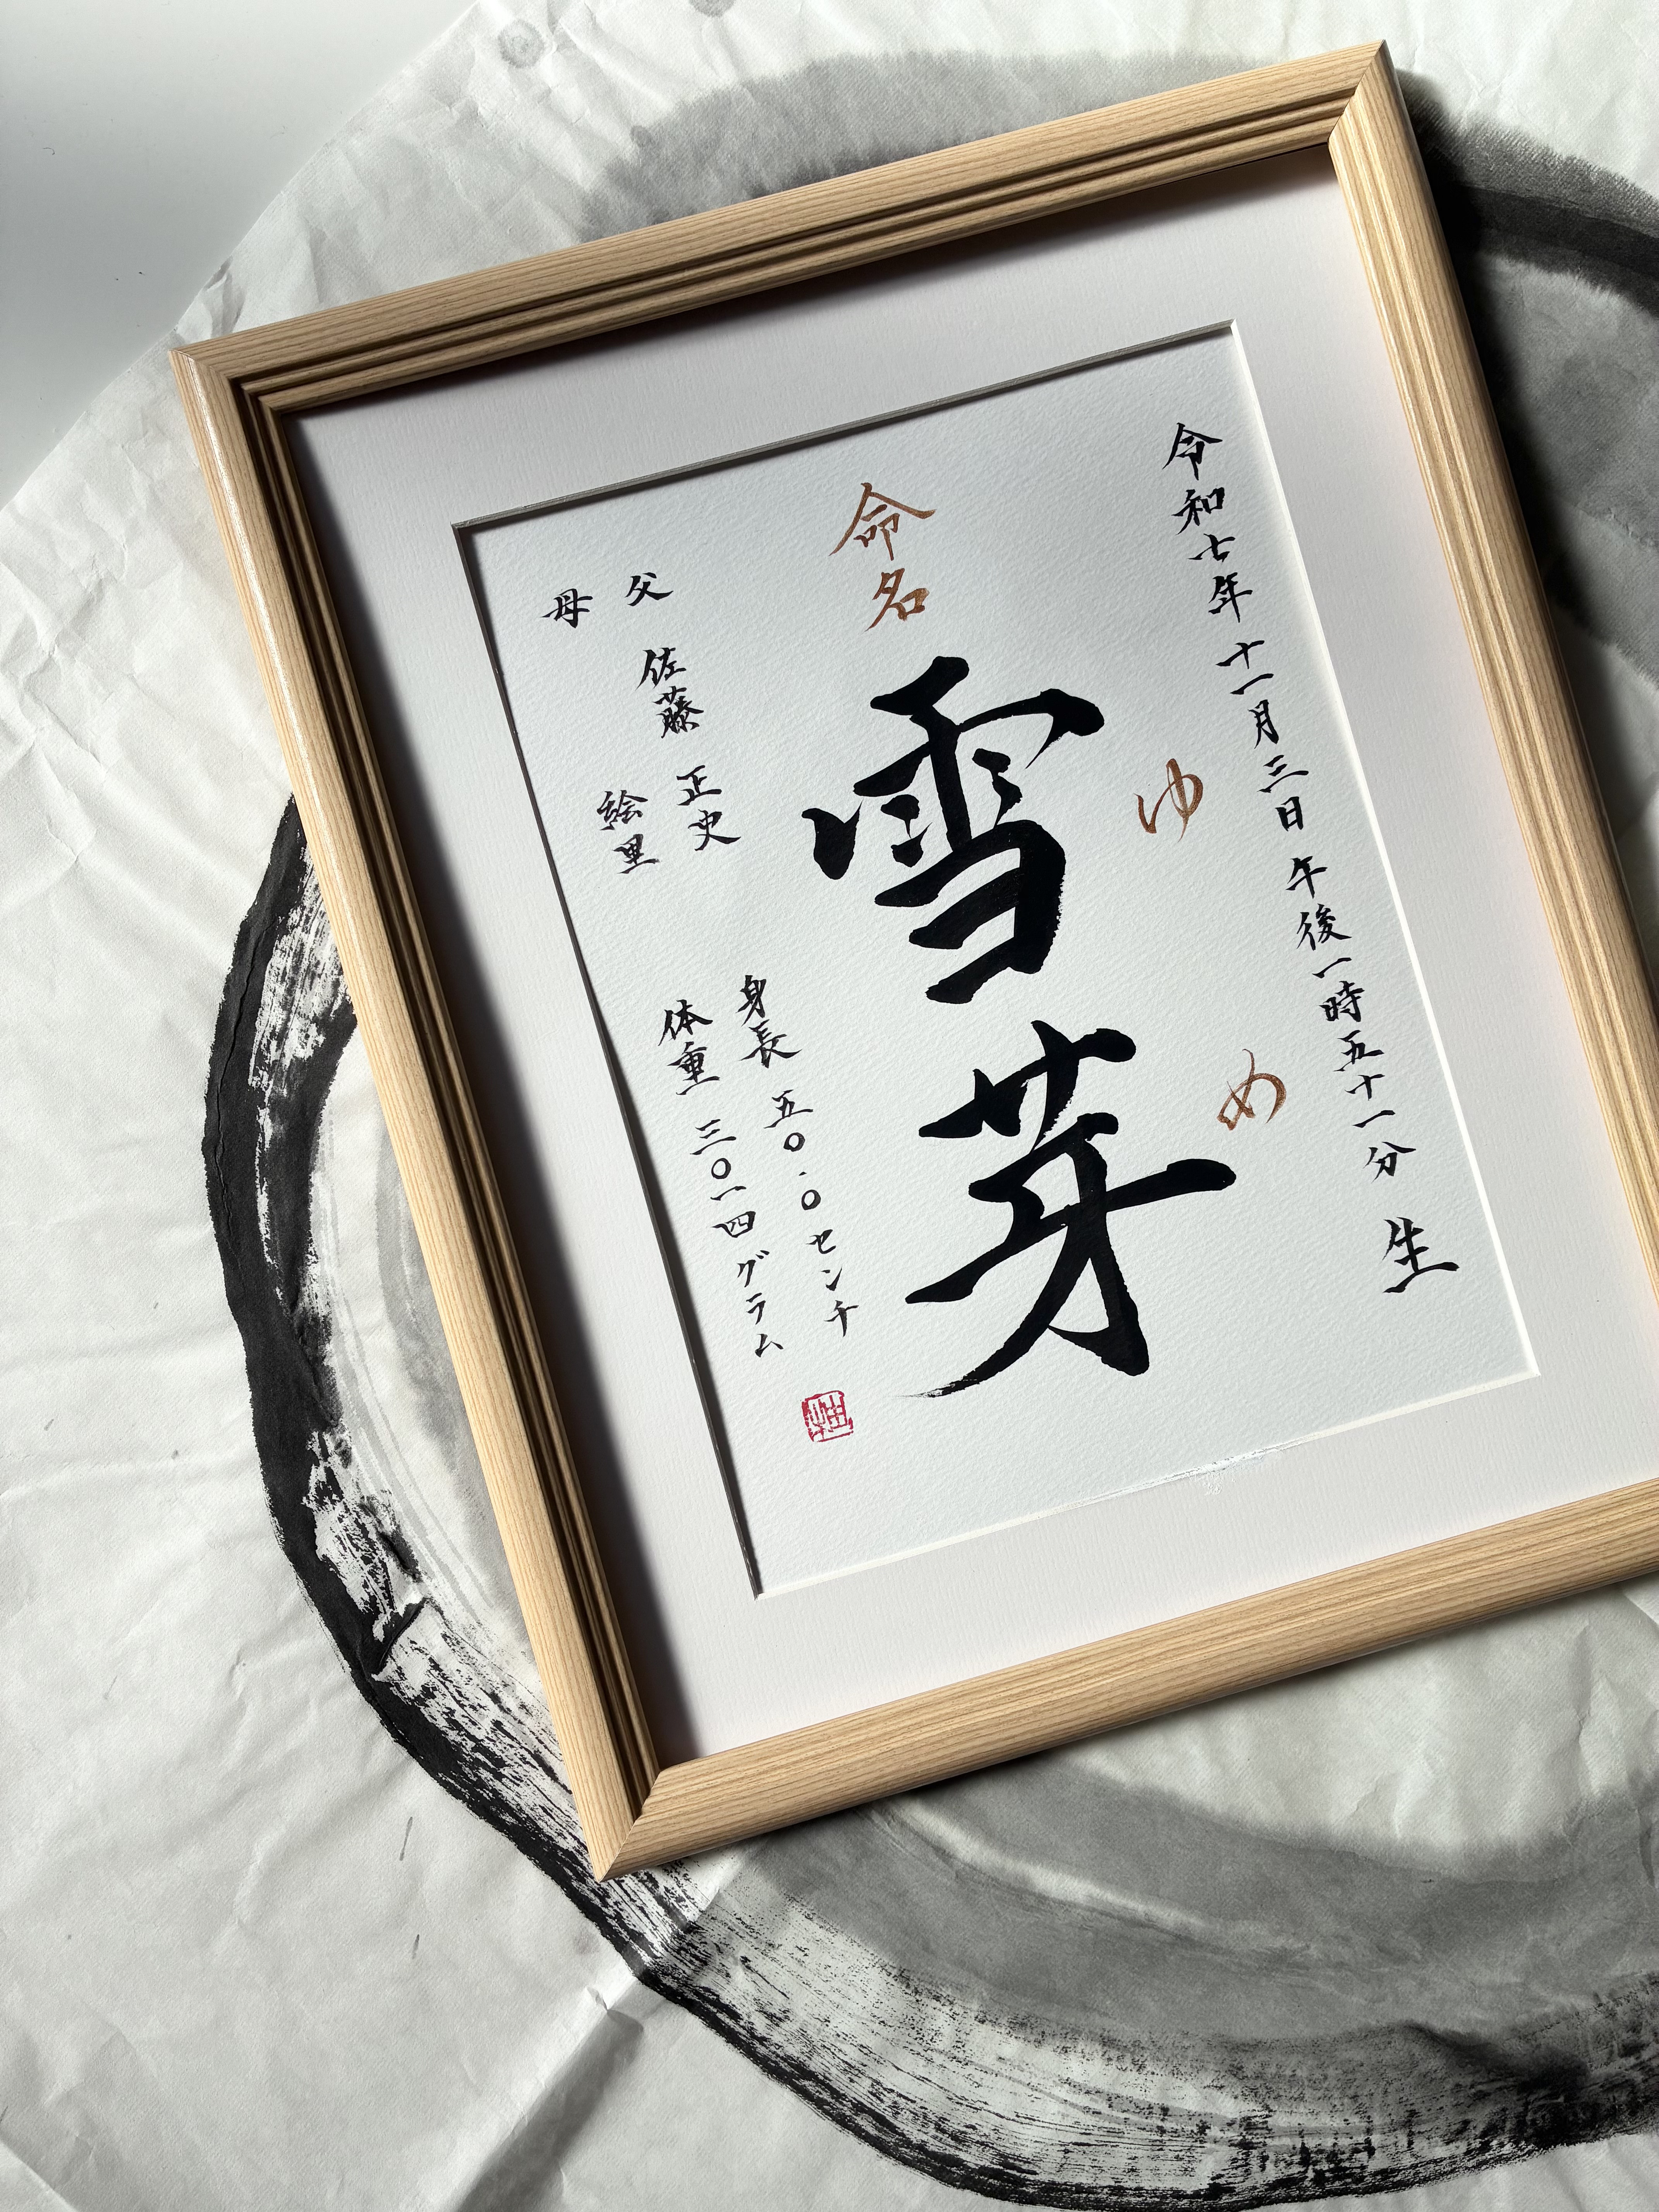 令和七年 十一月三日 午後一時五十一分 生
ゆめ
命名
雪芽
父 佐藤 正史
母 絵里
身長 五〇.〇センチ
体重 三〇一四グラム